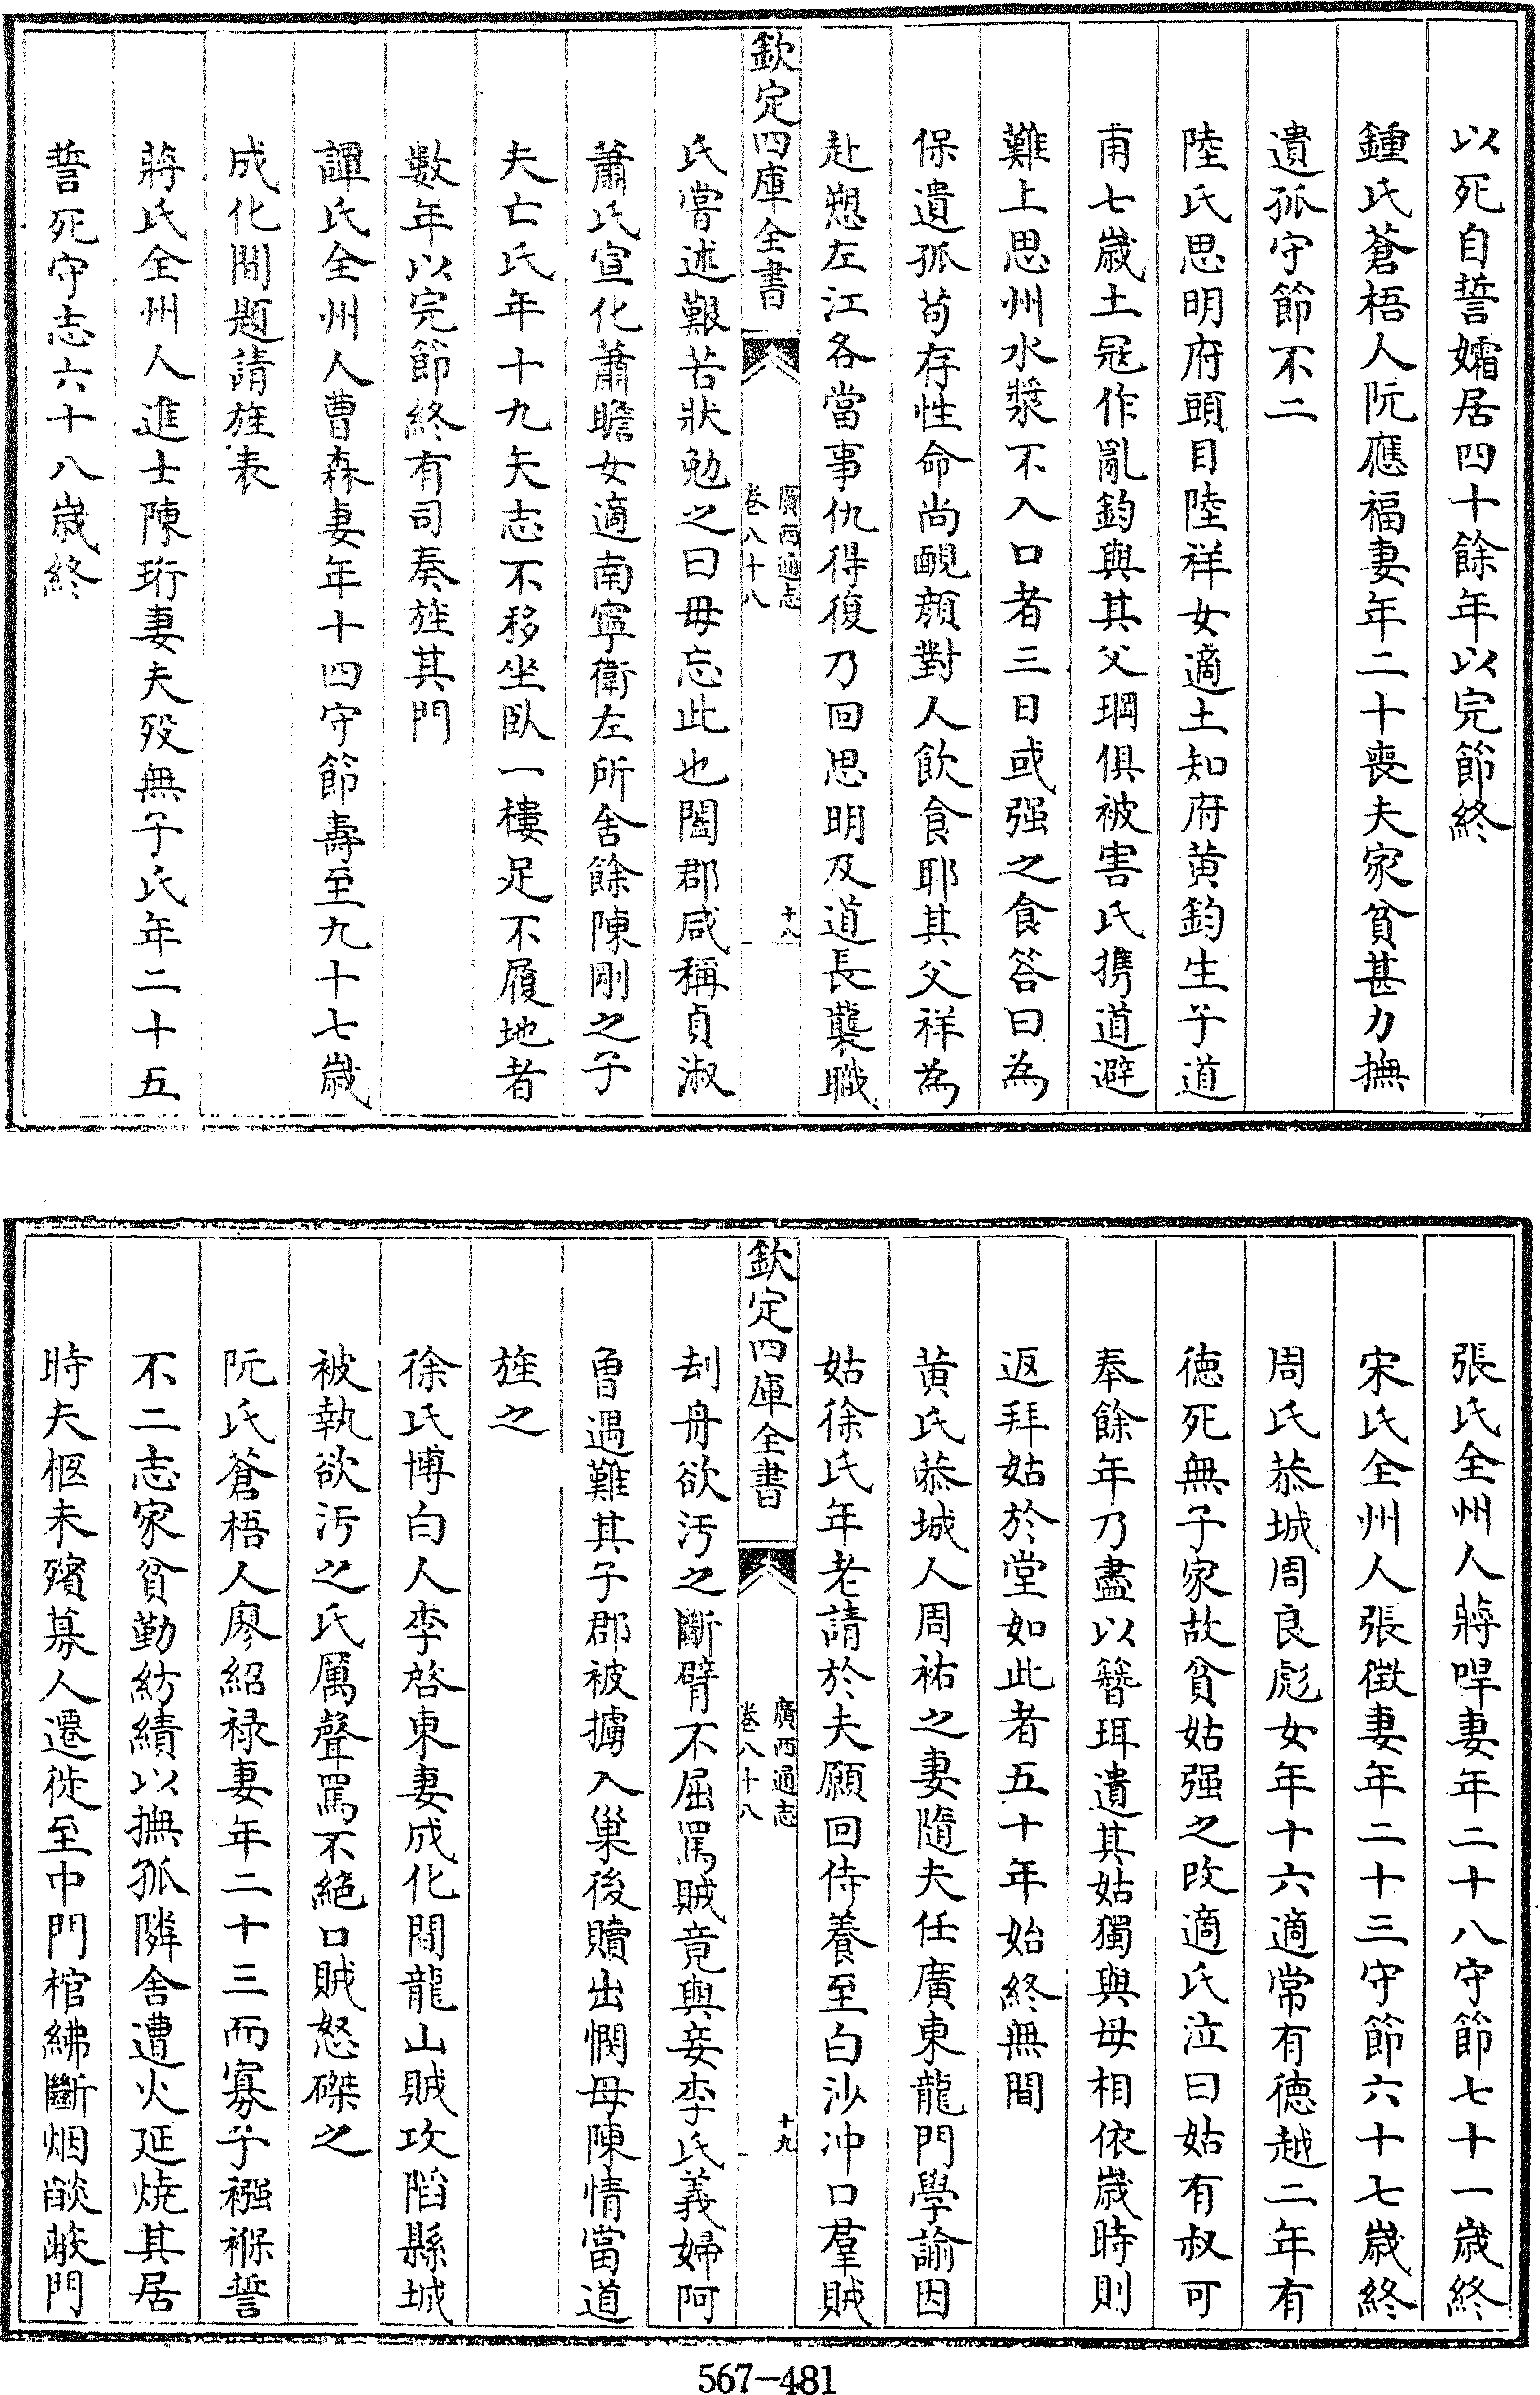 以死自誓孀居四十餘年以完節終
鍾氏蒼梧人阮應福妻年二十喪夫家貧甚力撫
遺孤守節不二
陸氏思明府頭目陸祥女適土知府黄鈞生子道
甫七歲土冦作亂鈞與其父㻏俱被害氏携道避
難上思州水漿不入口者三日或强之食答曰為
保遺孤苟存性命尚靦顔對人飲食耶其父祥為
赴愬左江各當事仇得復乃回思明及道長襲職
欽定四庫全書
廣西通志
卷八十八
十八
氏嘗述艱苦狀勉之曰毋忘此也闔郡咸稱貞淑
蕭氏宣化蕭瞻女適南寧衛左所舍餘陳剛之子
夫亡氏年十九矢志不移坐臥一樓足不履地者
數年以完節終有司奏旌其門
譚氏全州人曹森妻年十四守節壽至九十七歲
成化間題請旌表
蔣氏全州人進士陳珩妻夫歿無子氏年二十五
誓死守志六十八歲終
張氏全州人蔣㖫妻年二十八守節七十一歲終
宋氏全州人張徴妻年二十三守節六十七歲終
周氏恭城周良彪女年十六適常有徳越二年有
徳死無子家故貧姑强之改適氏泣曰姑有叔可
奉餘年乃盡以簪珥遺其姑獨與母相依歲時則
返拜姑於堂如此者五十年始終無間
黄氏恭城人周祐之妻隨夫任廣東龍門學諭因
姑徐氏年老請於夫願回侍養至白沙冲口羣賊
欽定四庫全書
廣西通志
卷八十八
十九
刦舟欲汚之斷臂不屈罵賊竟與妾李氏義婦阿
魯遇難其子郡被擄入巢後贖出憫母陳情當道
旌之
徐氏博白人李啓東妻成化間龍山賊攻陷縣城
被執欲汚之氏厲聲罵不絶口賊怒磔之
阮氏蒼梧人廖紹禄妻年二十三而寡子襁褓誓
不二志家貧勤紡績以撫孤隣舍遭火延燒其居
時夫柩未殯募人遷徙至中門棺紼斷烟燄蔽門
567-481